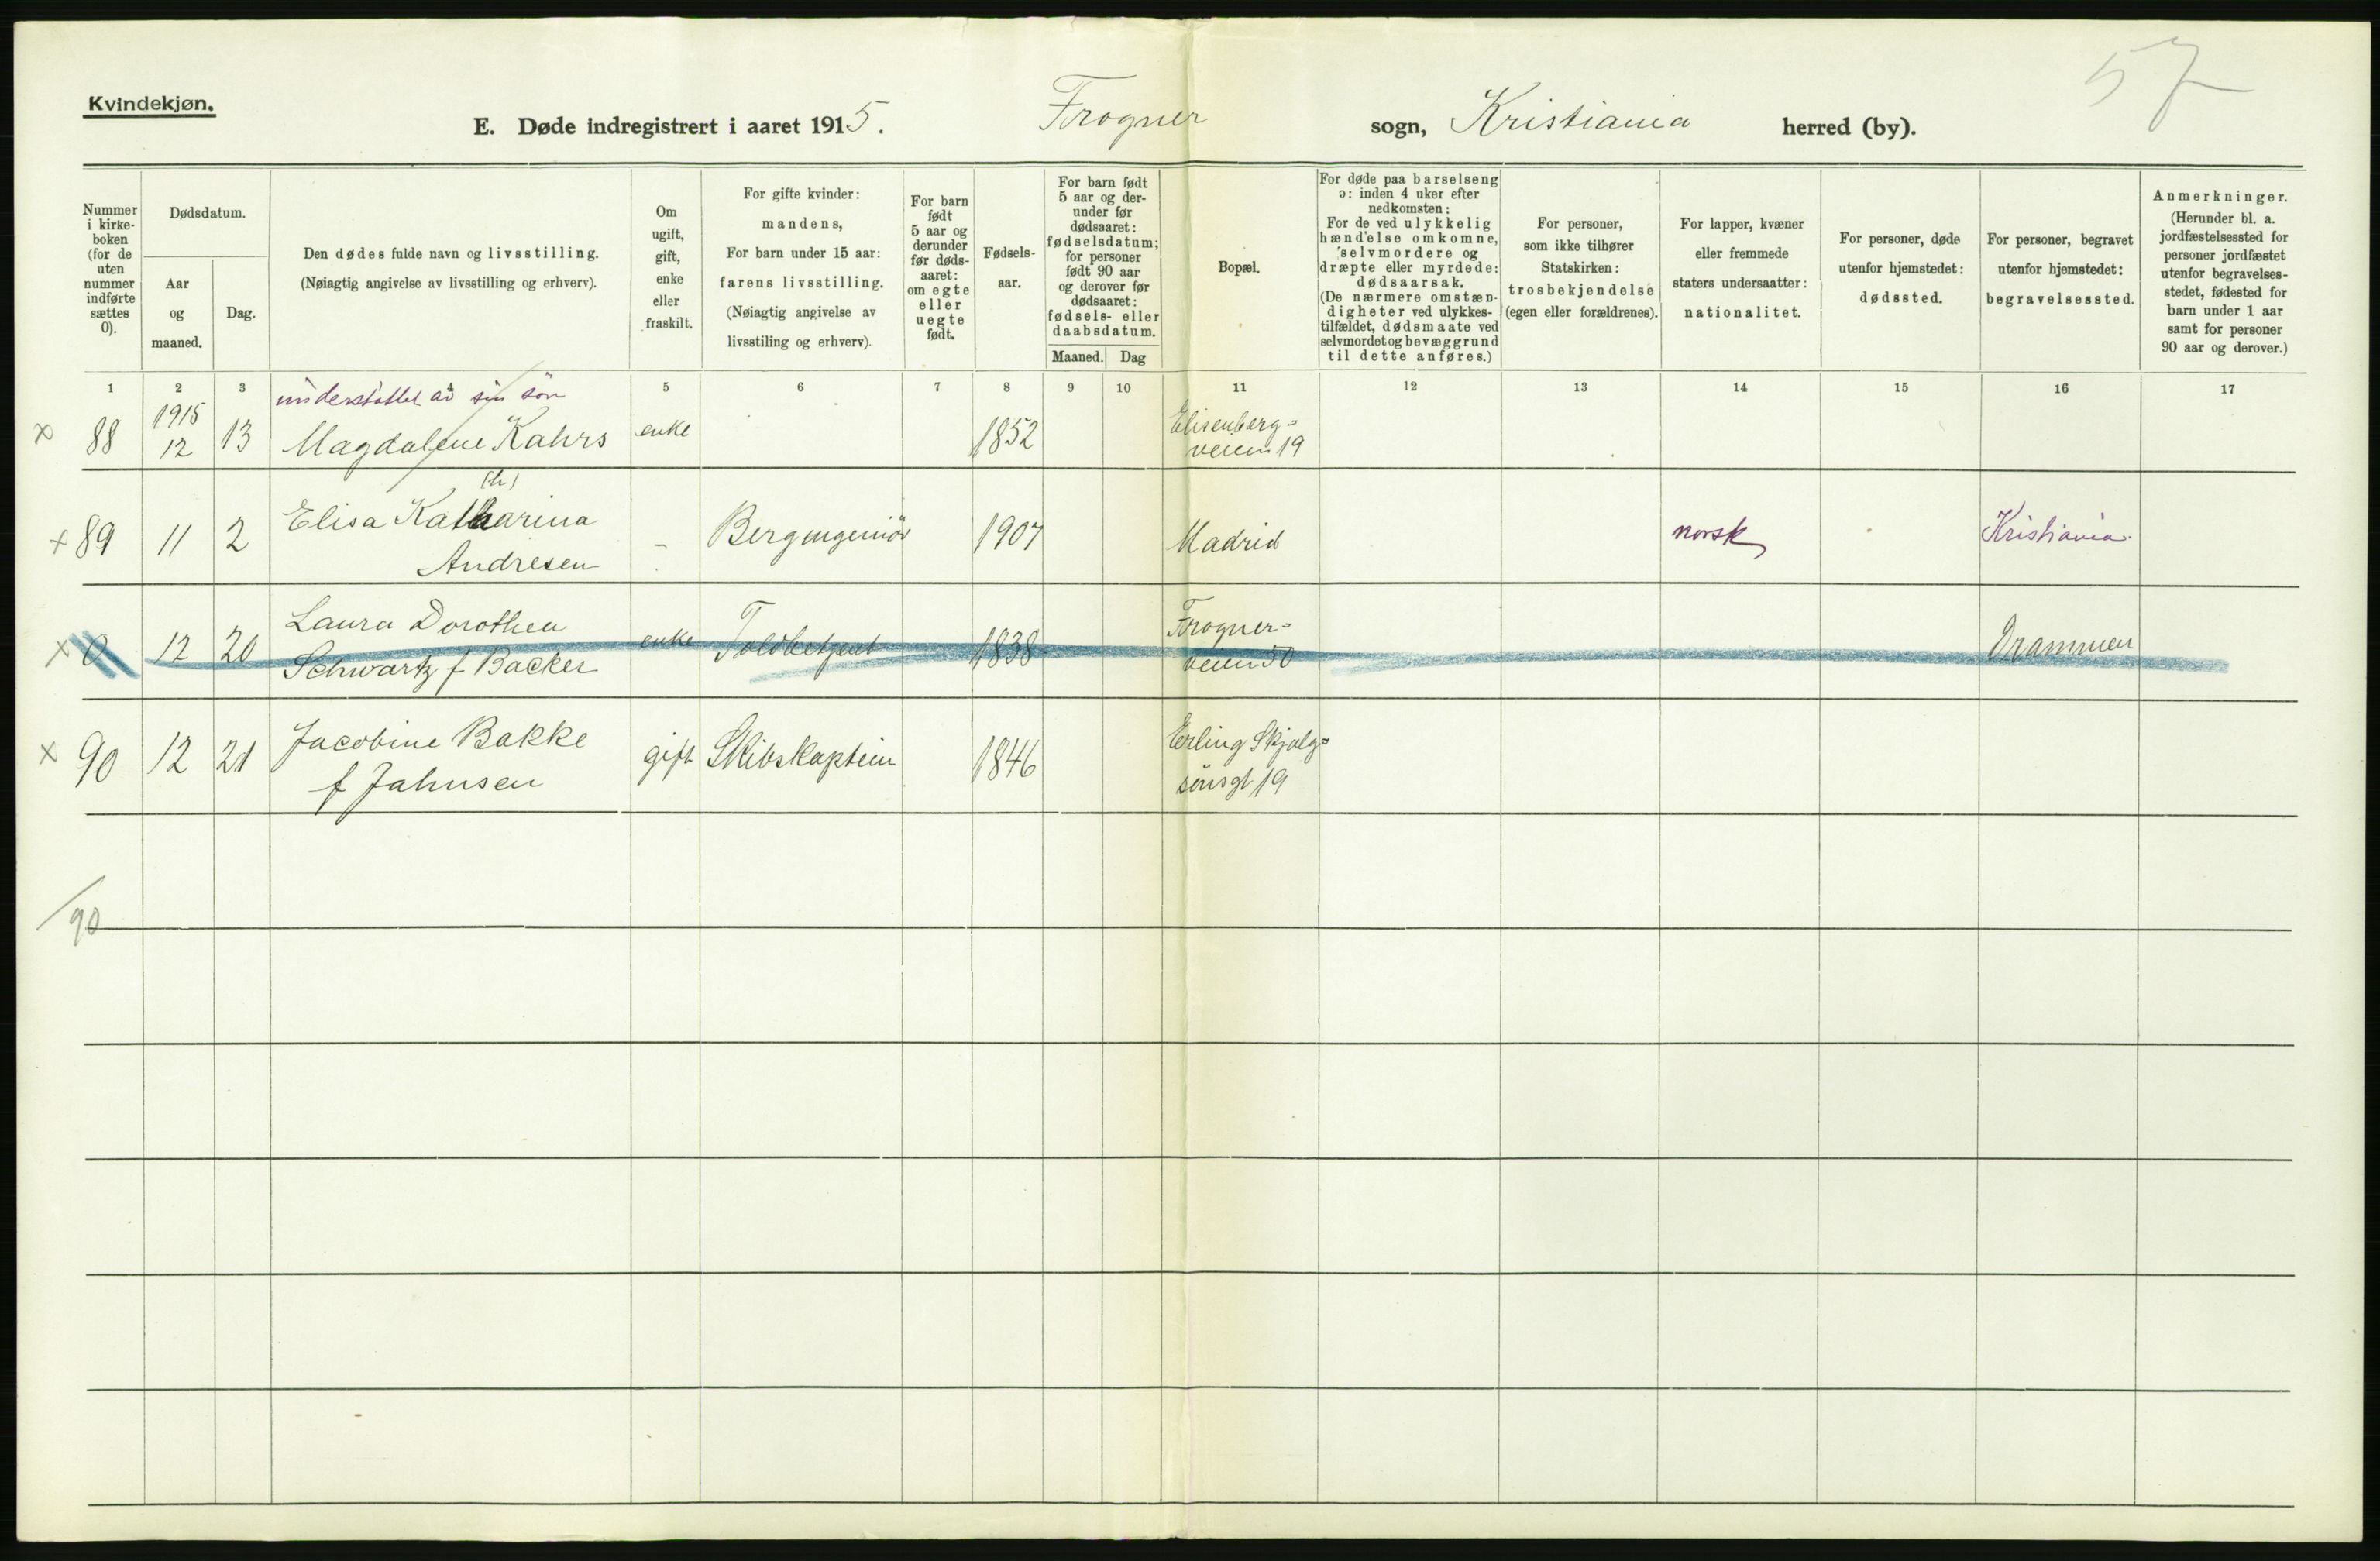 57
Kvindekjøn.
E. Døde indregistrert i aaret 1915. Frogner sogn, Kristiania herred (by).
Nummer i kirke-boken (for de uten nummer indførte sættes 0).
Dødsdatum.
Aar og maaned.
Dag.
Den dødes fulde navn og livsstilling.
(Nøiagtig angivelse av livsstilling og erhverv).
Om ugift, gift, enke eller fraskilt.
For gifte kvinder:
mandens,
For barn under 15 aar:
farens livsstilling.
(Nøiagtig angivelse av
livsstiling og erhverv).
For barn født 5 aar og derunder før døds-aaret: om egte eller uegte født.
Fødsels-aar.
For barn født 5 aar og der-under før dødsaaret: fødselsdatum; for personer født 90 aar og derover før dødsaaret: fødsels- eller daabsdatum.
Maaned. Dag
Bopæl.
For døde paa barselseng
ɔ: inden 4 uker efter
nedkomsten:
For de ved ulykkelig
hændelse omkomne,
selvmordere og
dræpte eller myrdede:
dødsaarsak.
(De nærmere omstæn-
digheter ved ulykkes-
tilfældet, dødsmaate ved
selvmordet og bevæggrund
til dette anføres.)
For personer,
som ikke tilhører
Statskirken:
trosbekjendelse
(egen eller forældrenes).
For lapper, kvæner
eller fremmede
staters undersaatter:
nationalitet.
For personer, døde
utenfor hjemstedet:
dødssted.
For personer, begravet
utenfor hjemstedet:
begravelsessted.
Anmerkninger.
(Herunder bl. a.
jordfæstelsessted for
personer jordfæstet
utenfor begravelses-
stedet, fødested for
barn under 1 aar
samt for personer
90 aar og derover.)
1 2 3 4 5 6 7 8 9 10 11 12 13 14 15 16 17
understøttet av sin søn
x 88 1915 12 13 Magdalene Kahrs enke 1852 Elisenberg=
veien 19
(h)
x 89 11 2 Elisa Katharina - Bergingeniør 1907 Madrid norsk Kristiania.
Andresen
x 0 12 20 Laura Dorothea enke Toldbetjent 1838 Frogner= Drammen
Schwartz f Backer veien 50
x 90 12 21 Jacobine Bakke gift Skibskaptein 1846 Erling Skjalg=
f Jahnsen sönsgt 19
/90